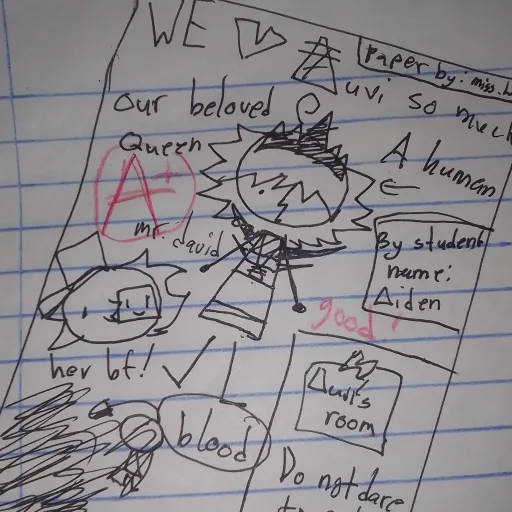 WE
Auvi so much
Paper by: miss.
our beloved
Queen
A+
A human
mr. david
By student
name:
Aiden
good!
her bf!
Auvi's
room
blood
Do not dare